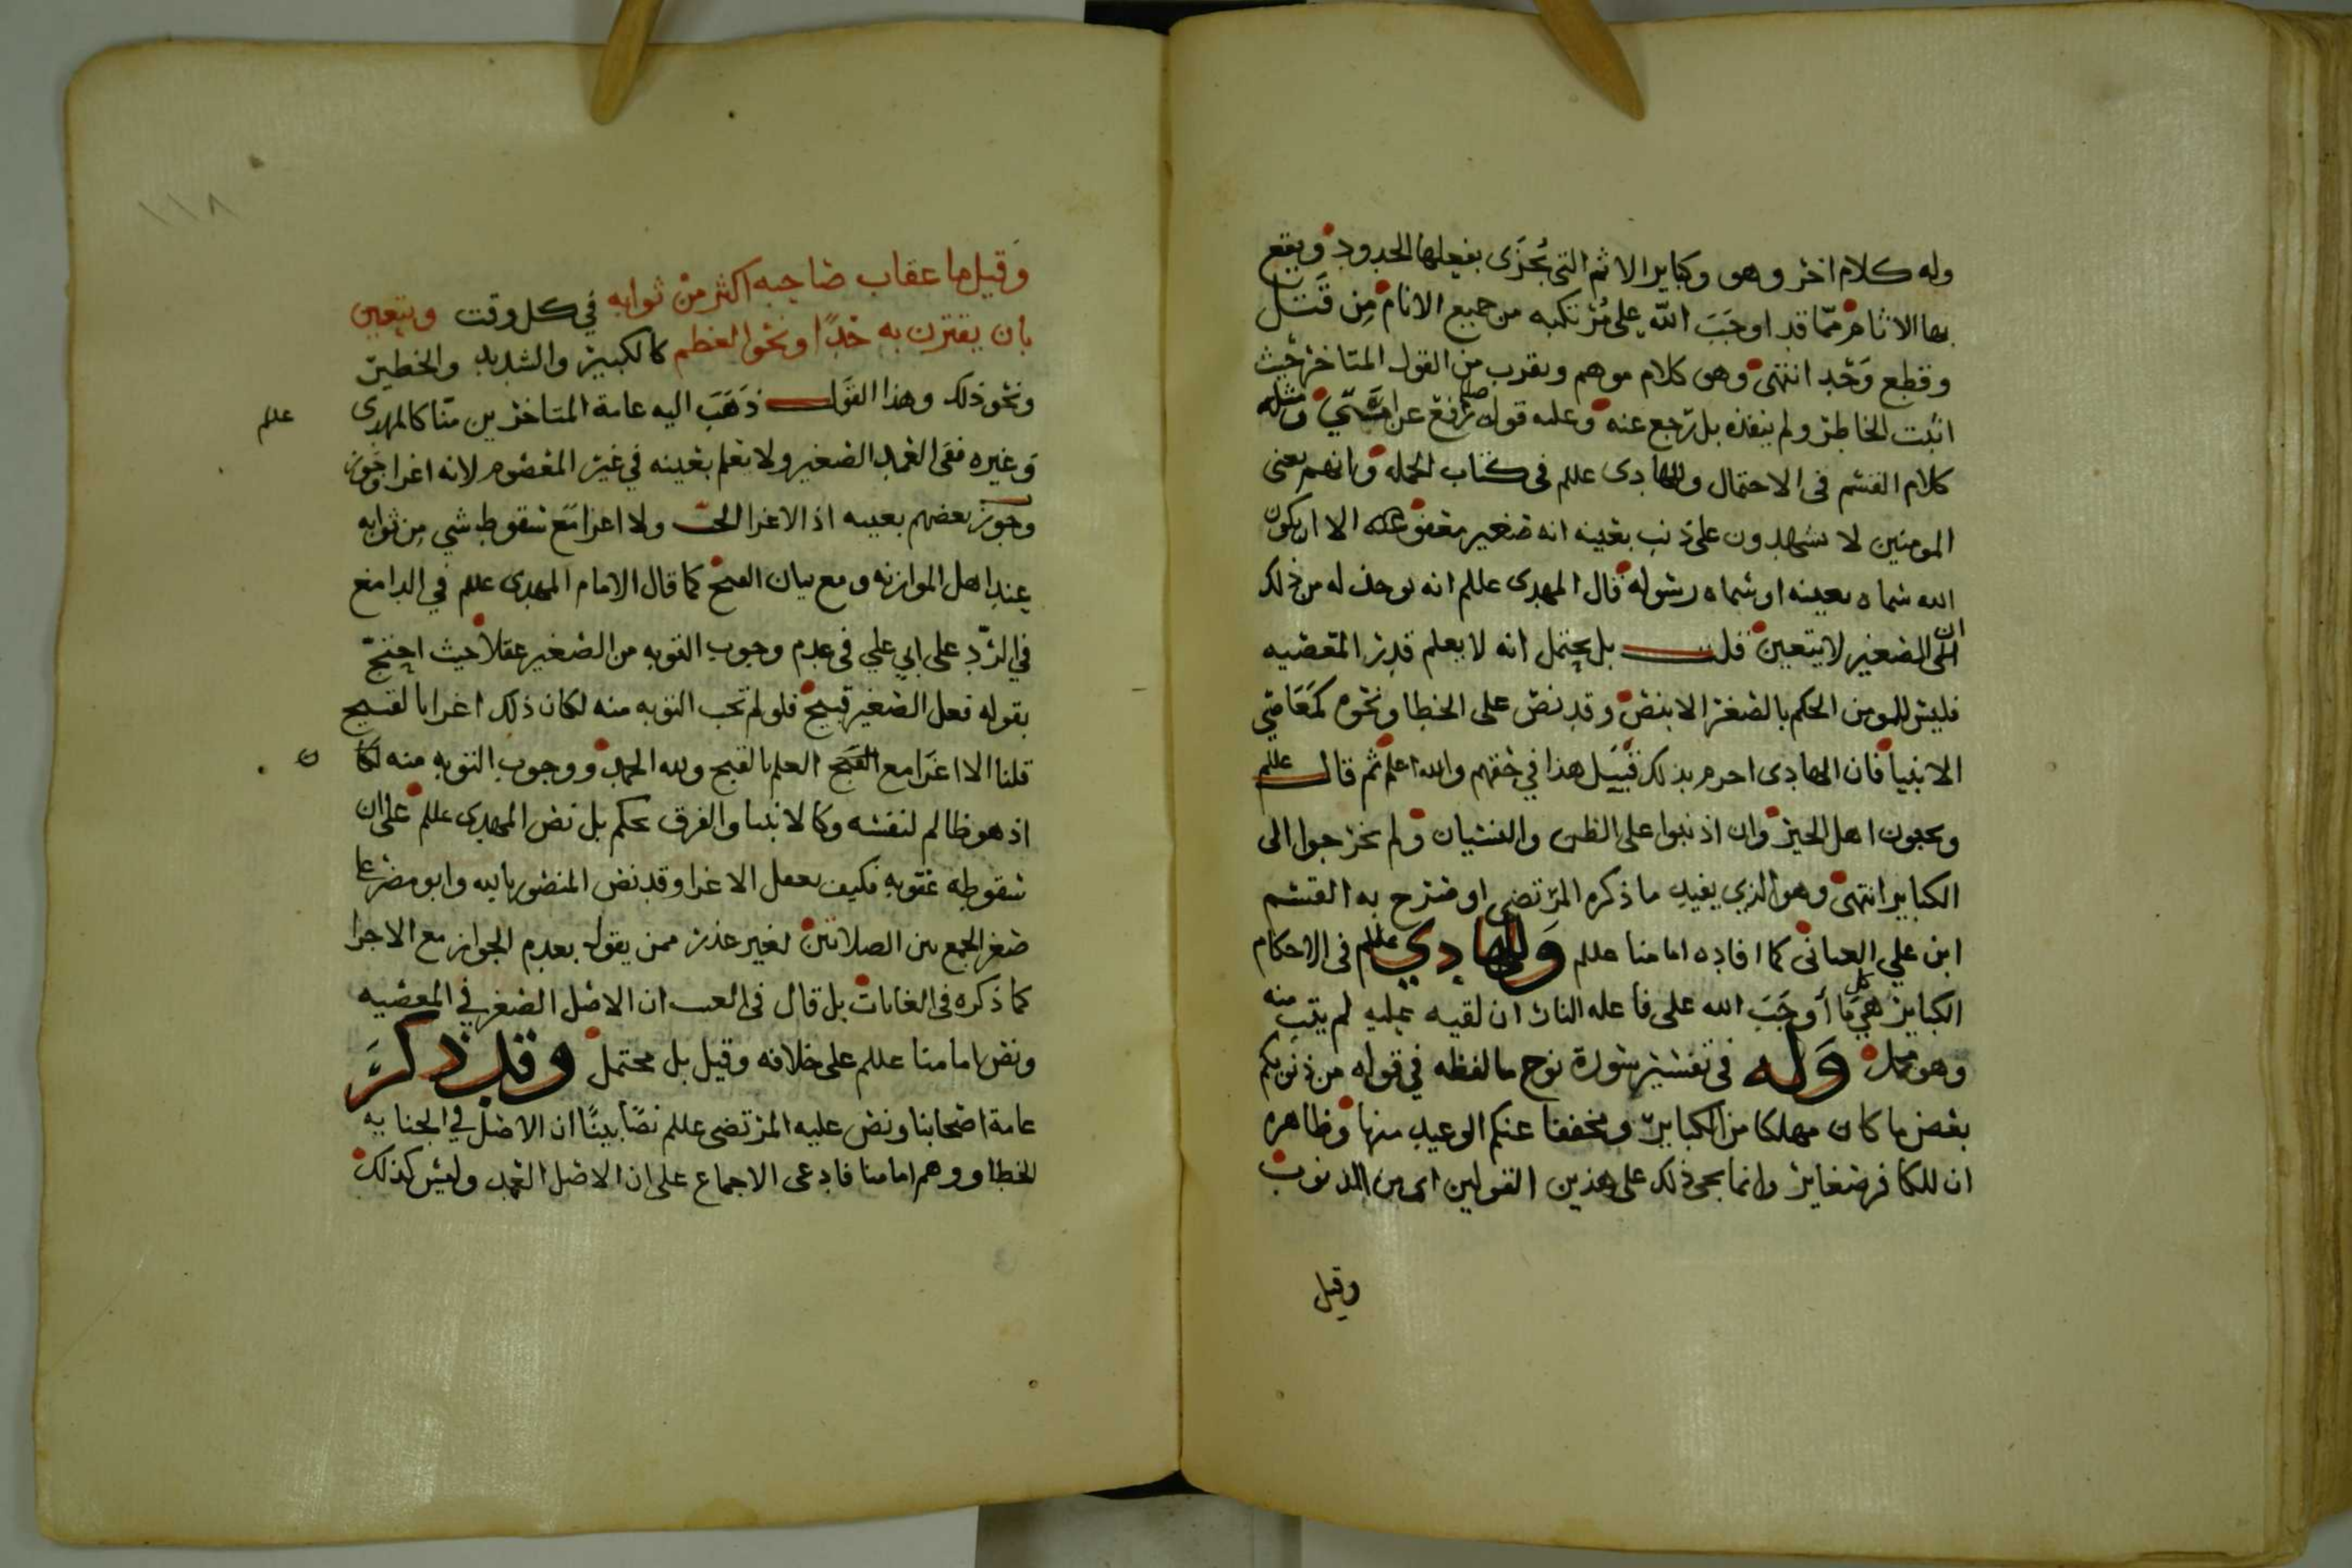 وله كلام اخر وهو وكباير الاثم التي يُجزَى بفعلها الحدود ويقع
بها الاثام ممّا قد اوجَبَ الله على مُرتكبه من جميع الانام مِن قَتل
وقطع وَحَد انتهى وهو كلام موهم ويقرب من القول المتاخر حيث
اثبت الخاطر ولم ينفذه بل رجع عنه وعليه قوله صلم رُفع عن امتي ومثله
كلام القسم في الاحتمال والهادي عللم في كتاب الجمله وانهم يعنى
المومنين لا يشهدون على ذنب بعينه انه صغير معفو عنه الا ان يكون
الله سماه بعينه او سماه رسوله قال المهدى علللم انه يوخذ له من ذلك
ان الصغير لا يتعين قلت بل يحتمل انه لا يعلم قدر المعصيه
فليس للمومن الحكم بالصغر الا بنص وقد نص على الخطا ونحوه كمَعَاصي
الانبيا فان الهادى احرم بذلك قبيَل هذا في حقهم والله اعلم ثم قال علللم
ويحبون اهل الخير وان اذنبوا على الظن والنسيان ولم يخرجوا الى
الكباير انتهى وهو الذي يفيد ما ذكره المرتضى او صرح به القسم
ابن علي العياني كما افاده امامنا علللم وَللهادي علللم في الاحكام
الكباير هي كل مَا أوجَبَ الله على فاعله النار ان لقيه عليه لم يتب منه
وهو مجمل وَله في تفسير سورة نوح ما لفظه في قوله من ذنوبكم
بعض ما كان مهلكا من الكباير ومخففا عنكم الوعيد منها وظاهره
ان للكافر صغاير وانما يجي ذلك على هذين القولين اى من الذنوب
وقيل
١١٨
وَقيل ما عقاب صاحبه اكثر من ثوابه في كل وقت ويتعين
بان يقترن به حدًا او نحو العظم كالكبير والشديد والخطير
ونحو ذلك وهذا القَول ذَهَبَ اليه عامة المتاخرين منّا كالمهدى
علللم
وَغيره ففى العمد الصغير ولا يعلم بعينه في غير المعصوم لانه اغرا
وجوز بعضهم بعينه اذ الاغرا الحث ولا اغرا مَع سقوط شي مِن ثوابه
عند اهل الموازنه ومع بيان القبح كما قال الامام المهدى علللم في الدامغ
في الرّد على ابي علي في عدم وجوب التوبه من الصغير عقلا حيث احتجّ
بقوله فعل الصغير قبيح فلو لم تجب التوبه منه لكان ذلك اغرا بالقبيح
قلنا الا اغَرا مع القبح العلم بالقبح ولله الحمد ووجوب التوبه منه لكا
ن
اذ هو ظالم لنفسه وكالانبيا والفرق تحكم بل نص المهدى علللم على ان
سقوطه عقوبه فكيف يعقل الاغرا وقد نص المنصور بالله وابو مضر على
صغر الجمع بين الصلاتين لغير عذر ممن يقول بعدم الجواز مع الاجزا
كما ذكره في الغايات بل قال في الغيث ان الاصل الصغر في المعصيه
ونص امامنا علللم على خلافه وقيل بل محتمل وقد ذكرَ
عامة اصحابنا ونص عليه المرتضى علللم نصًا بينًا ان الاصل في الجنايه
الخطا ووهم امامنا فادعى الاجماع على ان الاصل العمد وليس كذلك